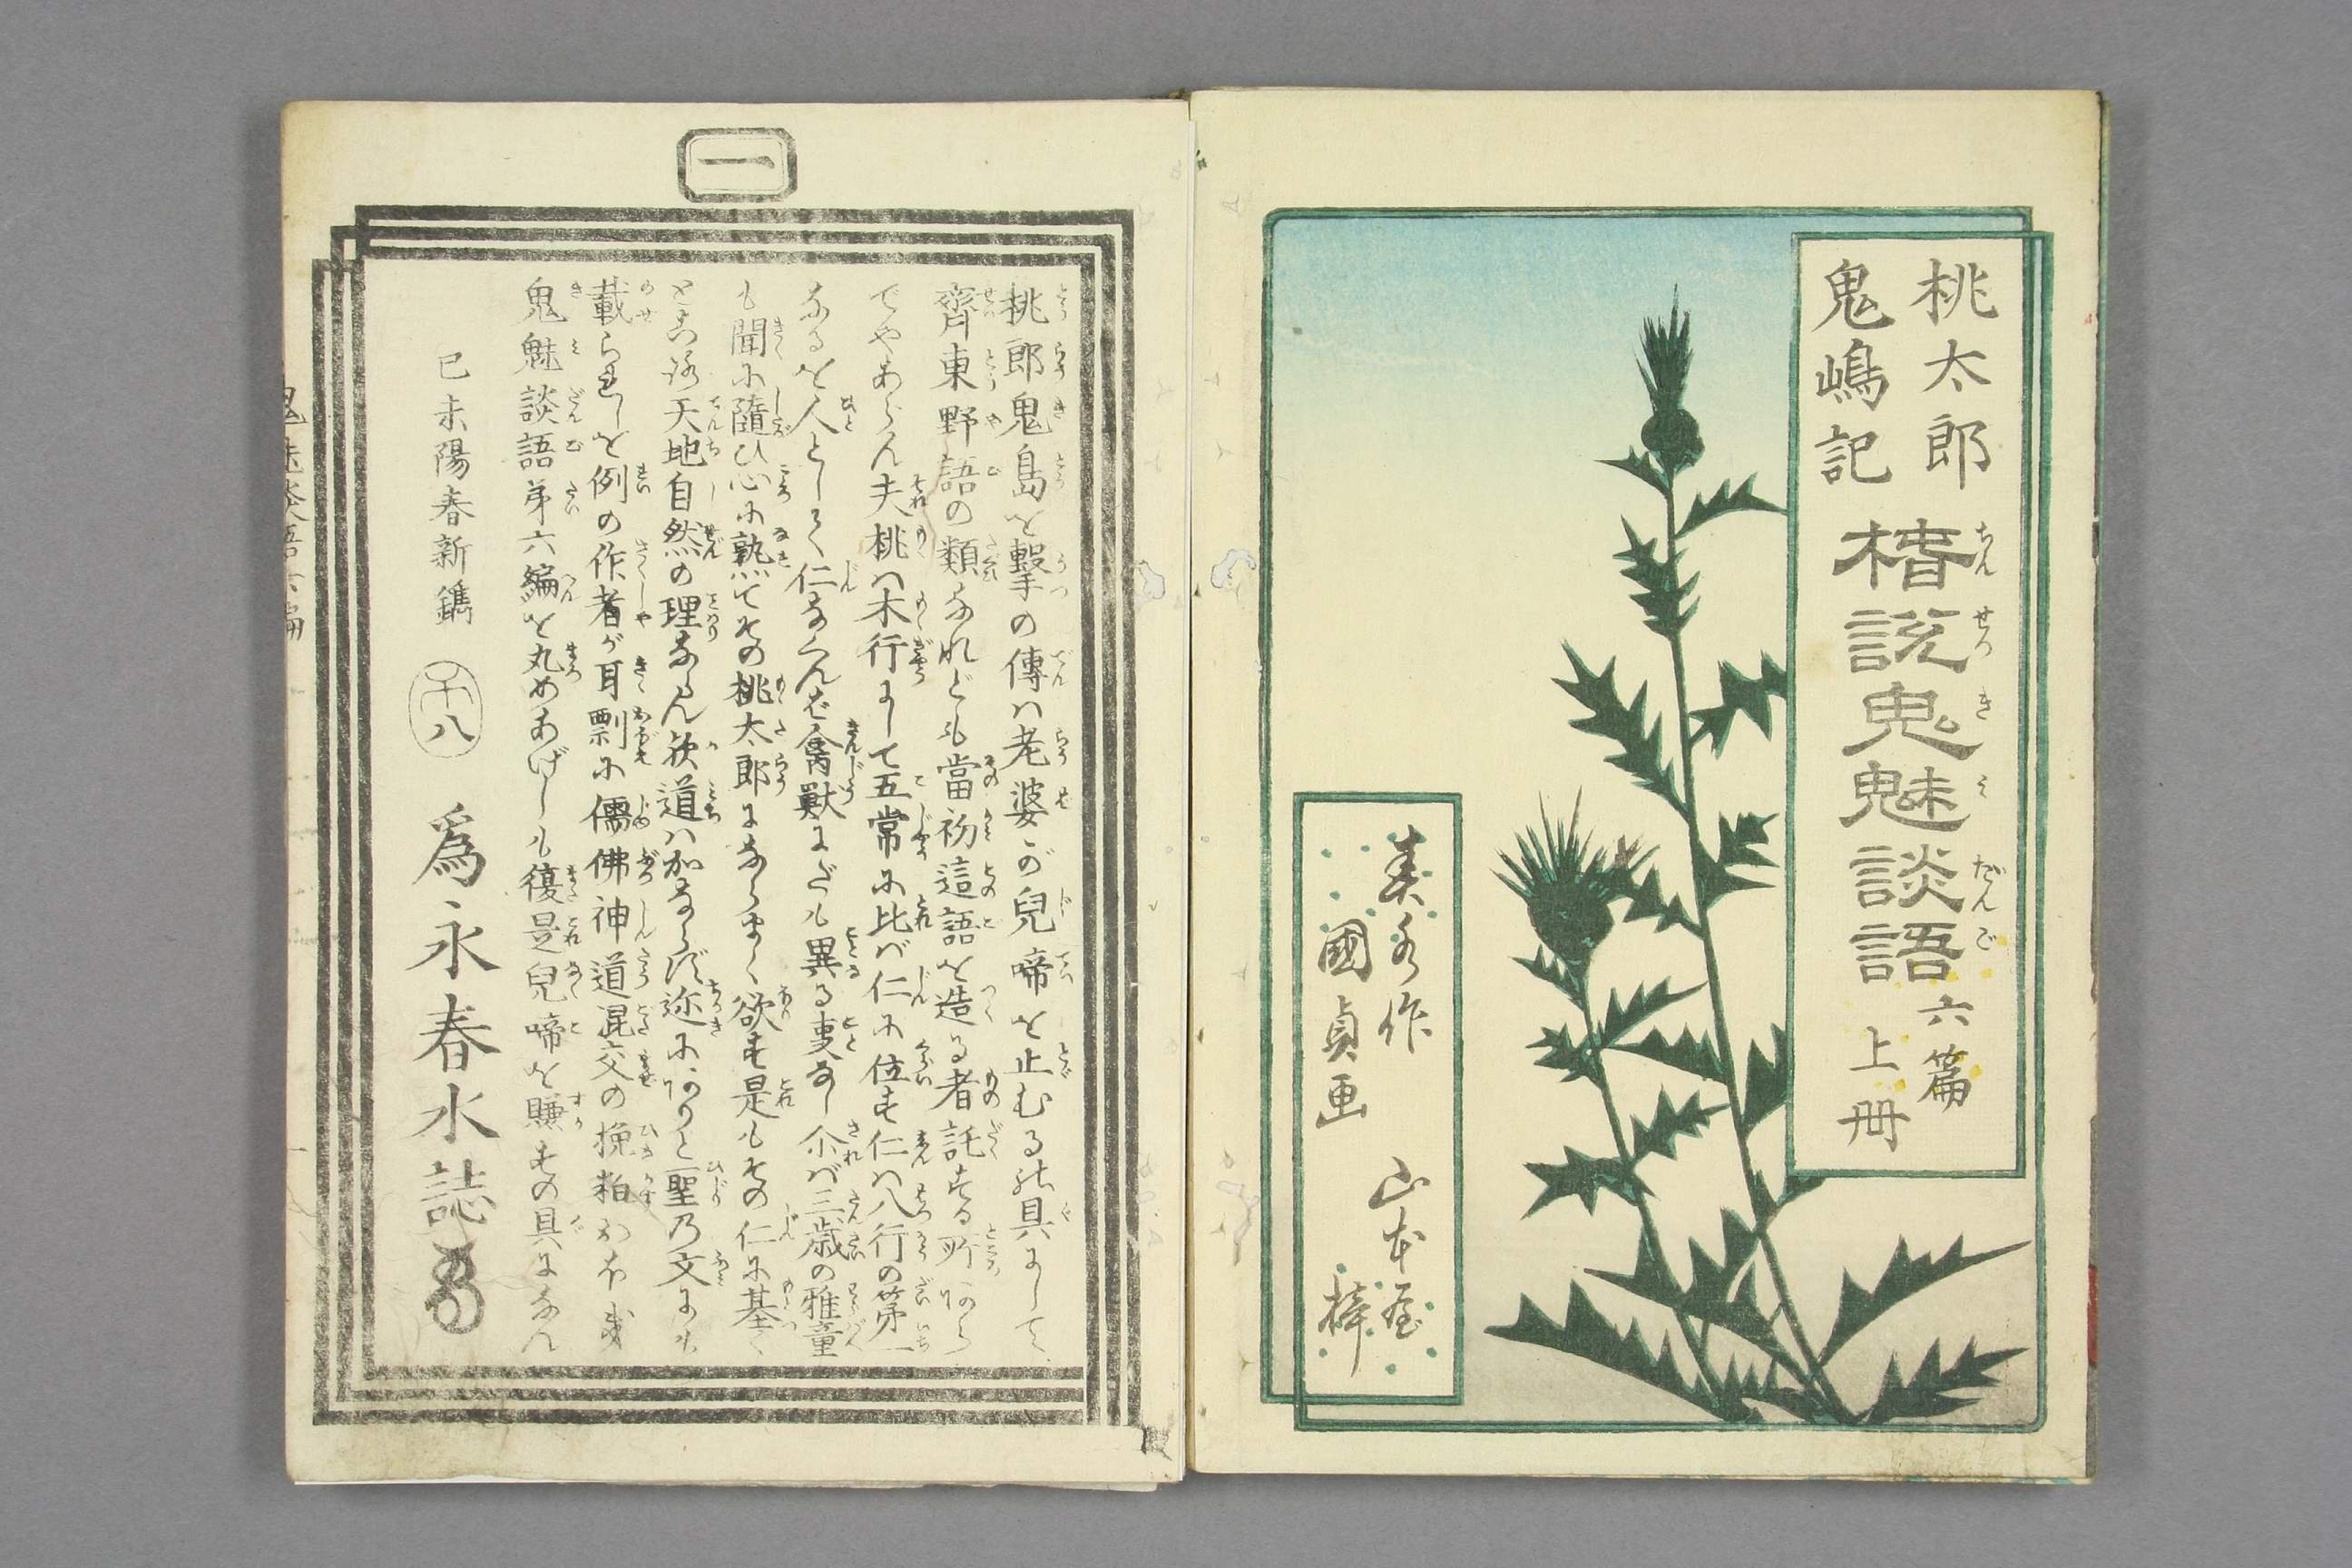 桃太郎
鬼嶋記
椿説鬼魅談語
ちんせつきみだんご
六篇
上冊
春水作
國貞画
山本屋
梓
一
桃郎鬼島を撃の傳ハ老婆が兒啼を止むる的具にして
齊東野語の類なれども當初這語を造る者託する所あら
でやあらん夫桃ハ木行にして五常に比バ仁に位す仁ハ八行の第一
なるを人として仁なくんば禽獣にだも異る事なし尒バ三歳の雅童
も聞に隨ひ心に熟てその桃太郎にならまく欲す是もその仁に基く
ところ天地自然の理ならん欤道ハ加ならず迩にありと聖乃文にも
載られしを例の作者が耳剽に儒佛神道混交の挽粕おほき
鬼魅談語第六編を丸めあげしも復是兒啼を賺すの具になん
己未陽春新鐫
爲永春水誌
鬼魅談語六編